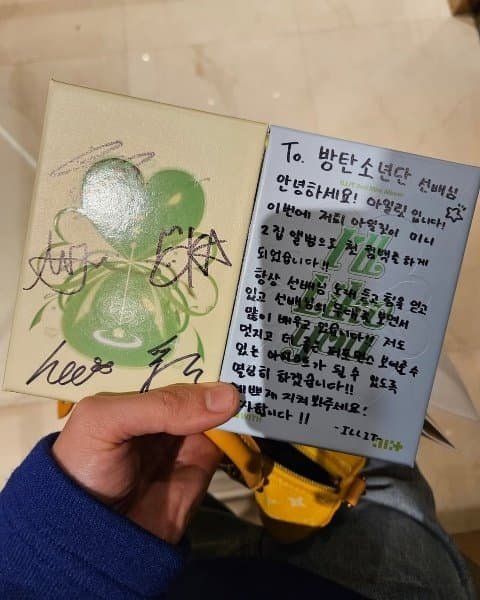 To. 방탄소년단 선배님
ILLIT 2nd Mini Album
안녕하세요! 아일릿 입니다!
이번에 저희 아일릿이 미니
2집 앨범으로 첫 컴백을 하게
되었습니다!!
항상 선배님 노래 듣고 힘을 얻고
있고 선배님의 무대를 보면서
많이 배우고 있습니다!! 저도
멋지고 더 좋은 퍼포먼스 보여줄 수
있는 아티스트가 될 수 있도록
열심히 하겠습니다!!
예쁘게 지켜 봐주세요!
감사합니다!!
-ILLIT
I'LL
LIKE
YOU